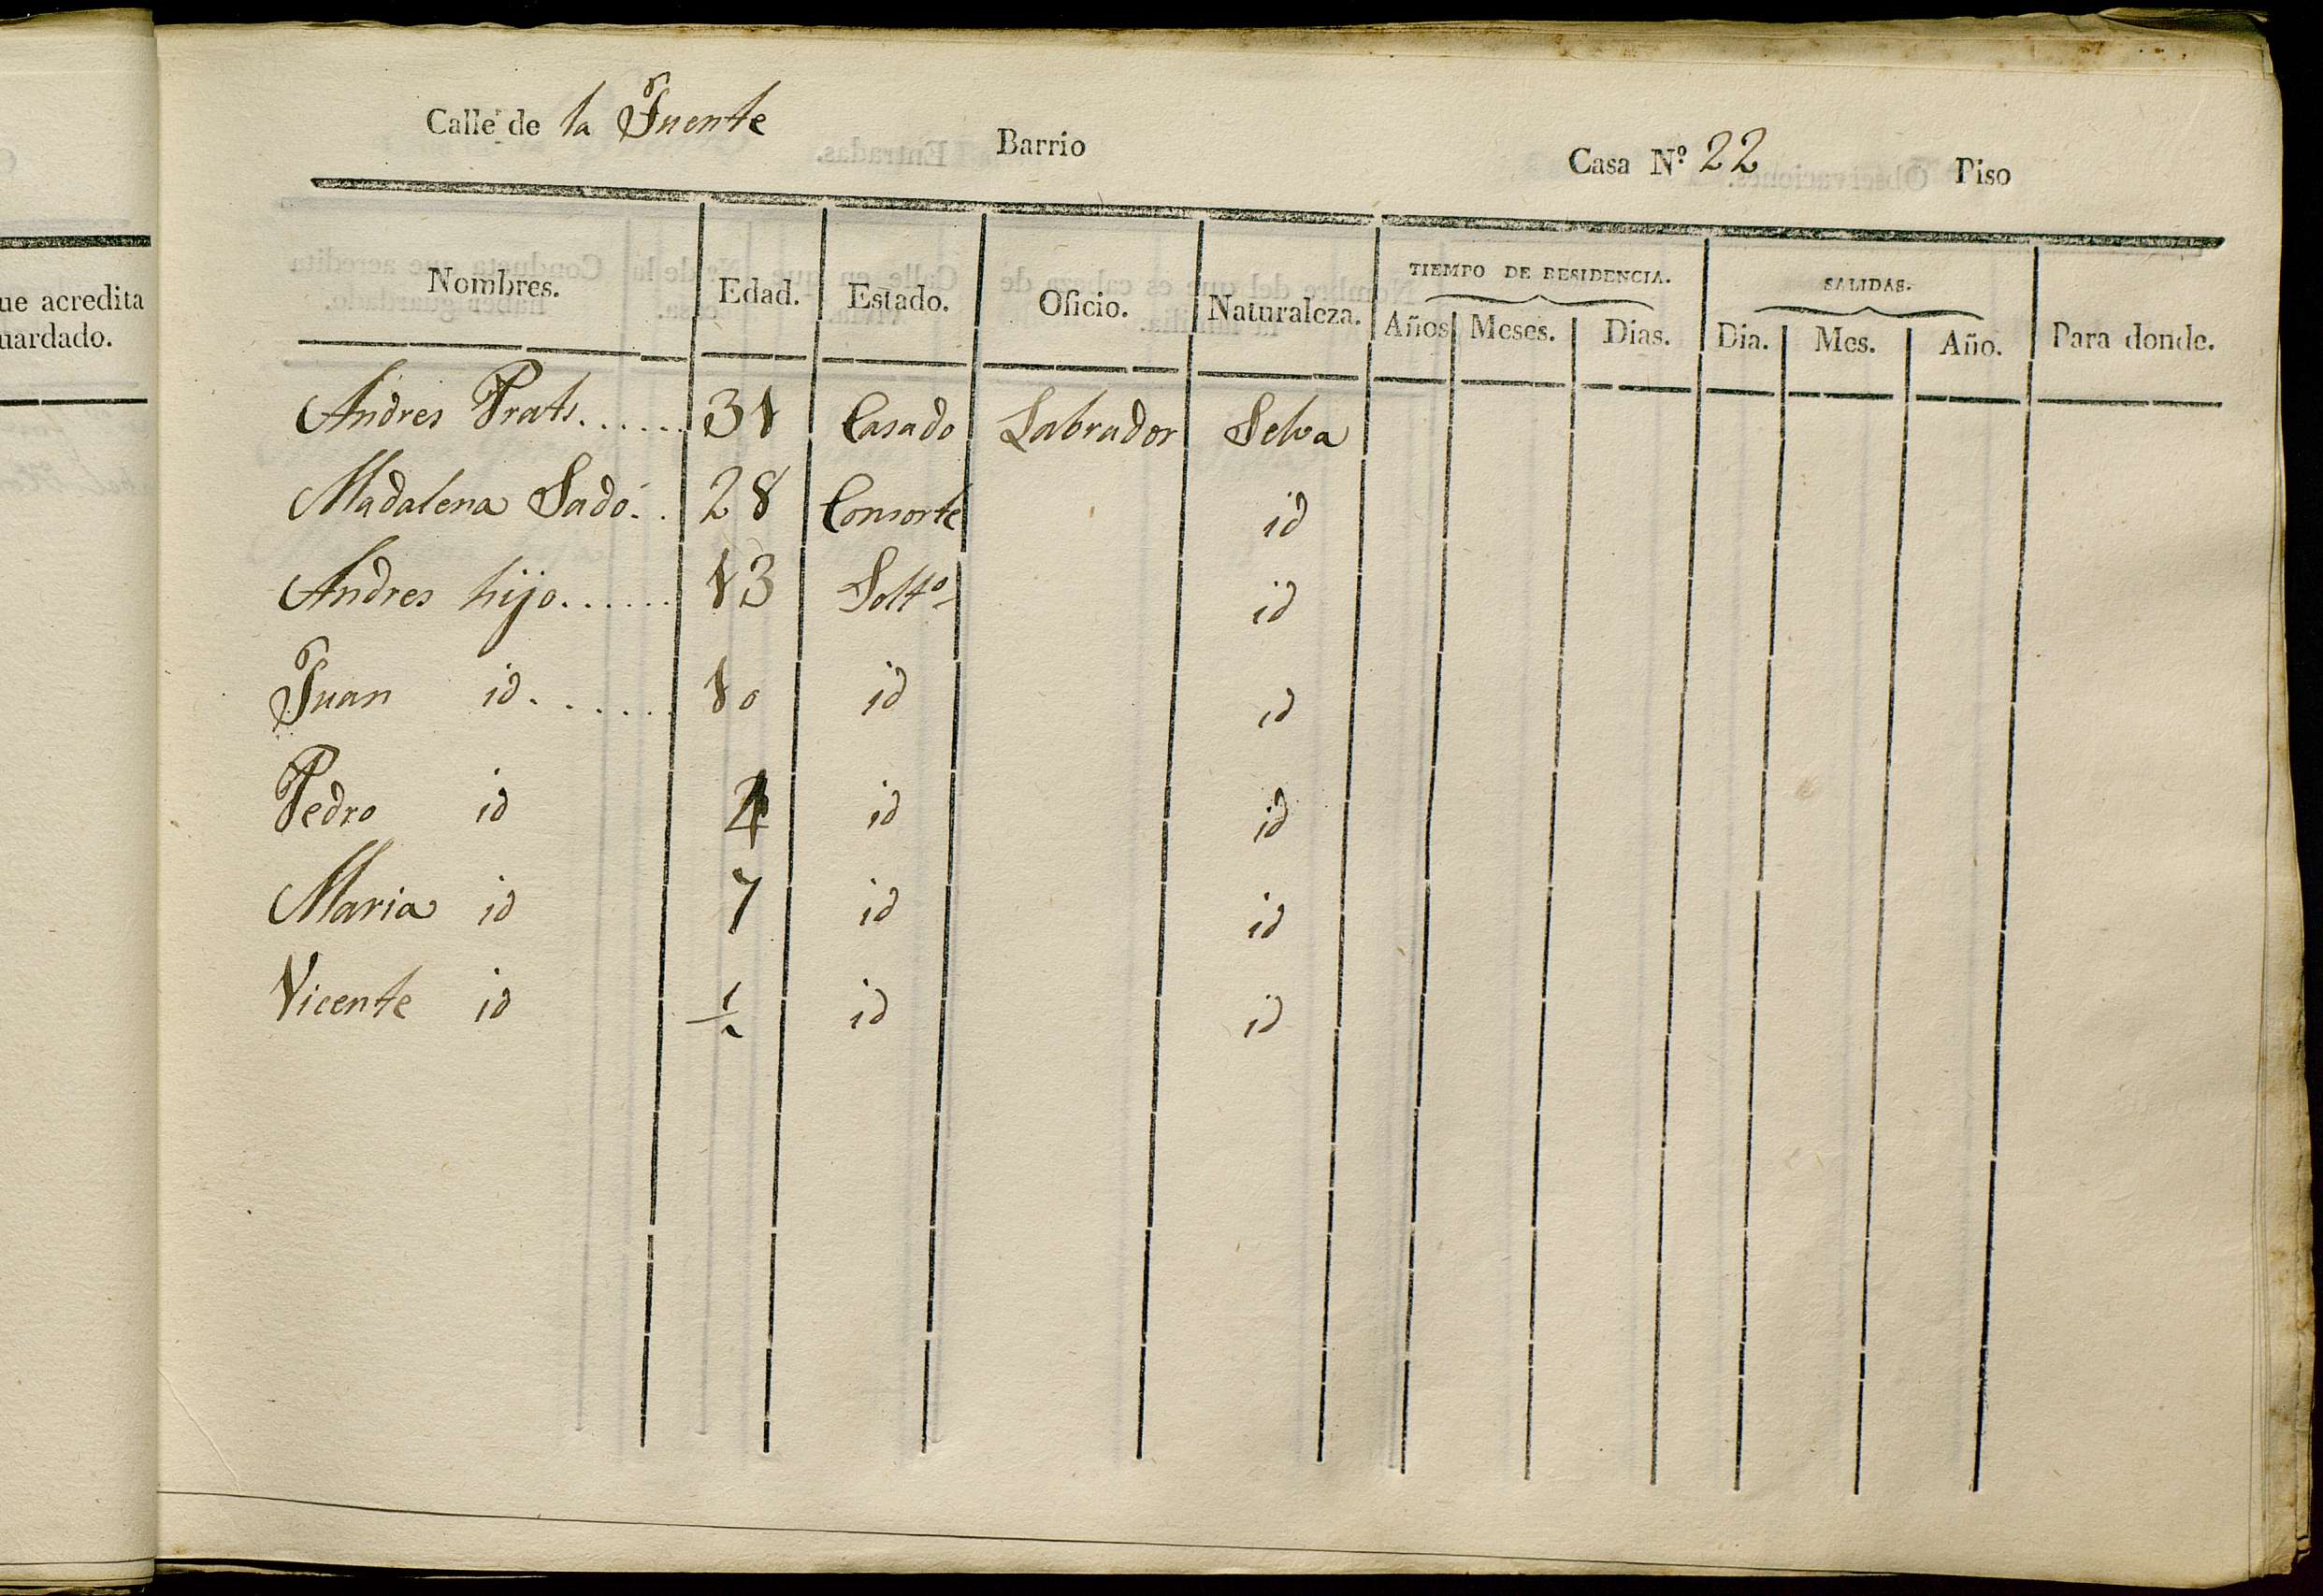 Calle de la Fuente Barrio Casa Nº. 22 Piso
ue acredita
uardado.
TIEMPO DE RESIDENCIA. SALIDAS.
Nombres. Edad. Estado. Oficio. Naturaleza. Años Meses. Dias. Dia. Mes. Año. Para donde.
Andres Prats...... 31 Casado Labrador Selva
Madalena Sadó.. 28 Consorte id
Andres hijo...... 13 Soltº id
Juan id...... 10 id id
Pedro id 4 id id
Maria id 7 id id
Vicente id ½ id id